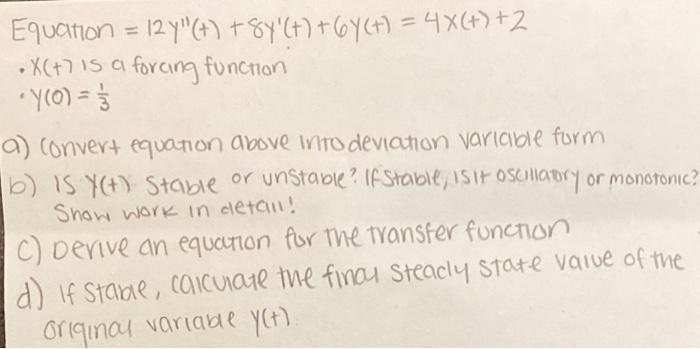 Equation = 12y"(t) + 8y'(t) + 6y(t) = 4x(t) + 2
• x(t) is a forcing function
• y(0) = 1/3
a) Convert equation above into deviation variable form
b) Is y(t) stable or unstable? If stable, is it oscillatory or monotonic?
Show work in detail!
c) Derive an equation for the transfer function
d) If stable, calculate the final steady state value of the
original variable y(t)